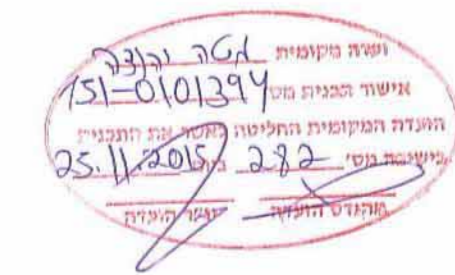 ועדה מקומית מטה יהודה
אישור תכנית מס' 151-0101394
הועדה המקומית החליטה לאשר את התכנית
בישיבה מס' 282 מיום 25.11.2015
מהנדס הועדה יושר הועדה